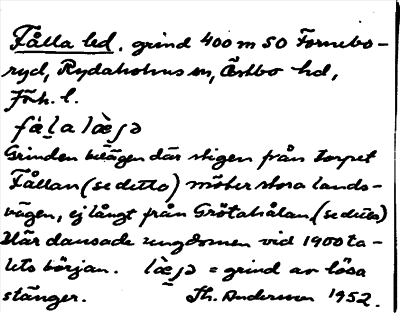 Fålla led, grind 400 m SO Fornebo-
ryd, Rydaholms sn, Östbo hd,
Jönk. l.
få̀la lǣ̀ʃə
Grinden belägen där stigen från torpet
Fållan (se detta) möter stora lands-
vägen, ej långt från Grötahålan (se detta)
Där dansade ungdomen vid 1900 ta-
lets början. lǣ̀ʃə = grind av lösa
stänger. Th. Andersson 1952.